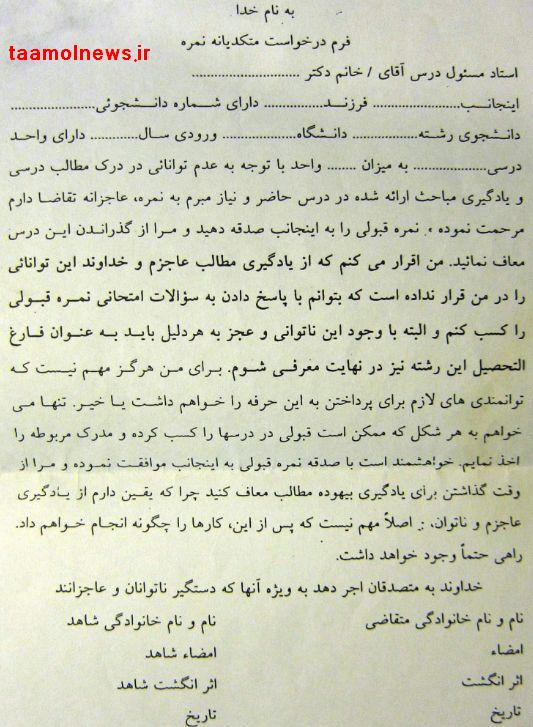 به نام خدا
taamolnews.ir
فرم درخواست متکدیانه نمره
استاد مسئول درس آقای / خانم دکتر ............................
اینجانب....................... فرزند............... دارای شماره دانشجوئی......................
دانشجوی رشته................. دانشگاه................... ورودی سال............ دارای واحد
درسی................... به میزان ........ واحد با توجه به عدم توانائی در درک مطالب درسی
و یادگیری مباحث ارائه شده در درس حاضر و نیاز مبرم به نمره، عاجزانه تقاضا دارم
مرحمت نموده ، نمره قبولی را به اینجانب صدقه دهید و مرا از گذراندن این درس
معاف نمائید. من اقرار می کنم که از یادگیری مطالب عاجزم و خداوند این توانائی
را در من قرار نداده است که بتوانم با پاسخ دادن به سؤالات امتحانی نمره قبولی
را کسب کنم و البته با وجود این ناتوانی و عجز به هردلیل باید به عنوان فارغ
التحصیل این رشته نیز در نهایت معرفی شوم. برای من هرگز مهم نیست که
توانمندی های لازم برای پرداختن به این حرفه را خواهم داشت یا خیر. تنها می
خواهم به هر شکل که ممکن است قبولی در درسها را کسب کرده و مدرک مربوطه را
اخذ نمایم. خواهشمند است با صدقه نمره قبولی به اینجانب موافقت نموده و مرا از
وقت گذاشتن برای یادگیری بیهوده مطالب معاف کنید چرا که یقین دارم از یادگیری
عاجزم و ناتوان، و اصلاً مهم نیست که پس از این، کارها را چگونه انجام خواهم داد.
راهی حتماً وجود خواهد داشت.
خداوند به متصدقان اجر دهد به ویژه آنها که دستگیر ناتوانان و عاجزانند
نام و نام خانوادگی متقاضی
نام و نام خانوادگی شاهد
امضاء
امضاء شاهد
اثر انگشت
اثر انگشت شاهد
تاریخ
تاریخ